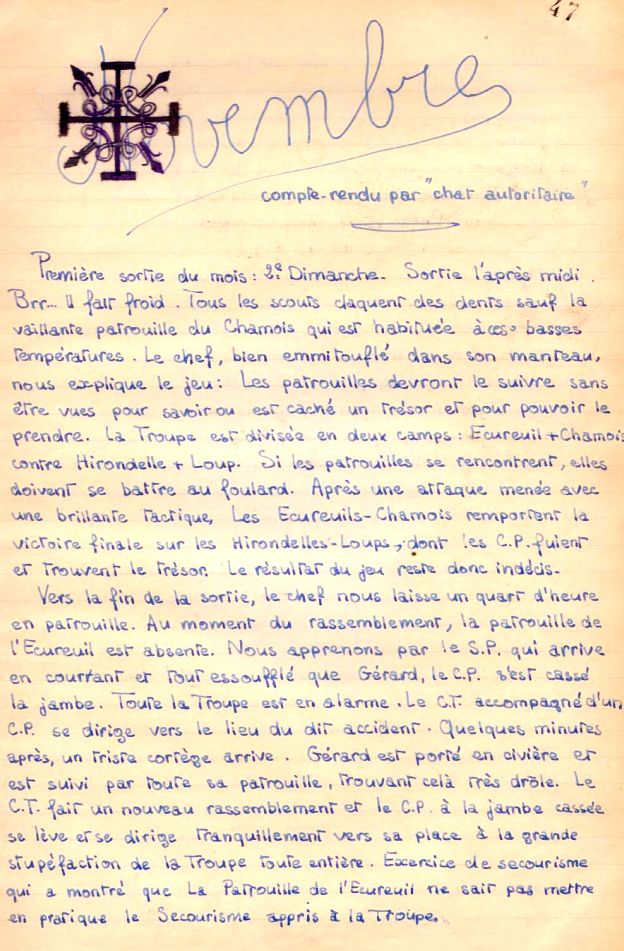 47
Novembre
compte-rendu par "chat autoritaire"
Première sortie du mois : 2e Dimanche. Sortie l'après midi.
Brr... Il fait froid. Tous les scouts claquent des dents sauf la
vaillante patrouille du Chamois qui est habituée à ces basses
températures. Le chef, bien emmitouflé dans son manteau,
nous explique le jeu : Les patrouilles devront le suivre sans
être vues pour savoir ou est caché un trésor et pour pouvoir le
prendre. La Troupe est divisée en deux camps : Ecureuil + Chamois
contre Hirondelle + Loup. Si les patrouilles se rencontrent, elles
doivent se battre au foulard. Après une attaque menée avec
une brillante tactique, Les Ecureuils-Chamois remportent la
victoire finale sur les Hirondelles-Loups, dont les C.P. fuient
et trouvent le trésor. Le résultat du jeu reste donc indécis.
Vers la fin de la sortie, le chef nous laisse un quart d'heure
en patrouille. Au moment du rassemblement, la patrouille de
l'Ecureuil est absente. Nous apprenons par le S.P. qui arrive
en courrant et tout essoufflé que Gérard, le C.P. s'est cassé
la jambe. Toute la Troupe est en alarme. Le C.T. accompagné d'un
C.P. se dirige vers le lieu du dit accident. Quelques minutes
après, un triste cortège arrive. Gérard est porté en civière et
est suivi par toute sa patrouille, trouvant celà très drôle. Le
C.T. fait un nouveau rassemblement et le C.P. à la jambe cassée
se lève et se dirige tranquillement vers sa place à la grande
stupéfaction de la Troupe toute entière. Exercice de secourisme
qui a montré que La Patrouille de l'Ecureuil ne sait pas mettre
en pratique le Secourisme appris à la Troupe.